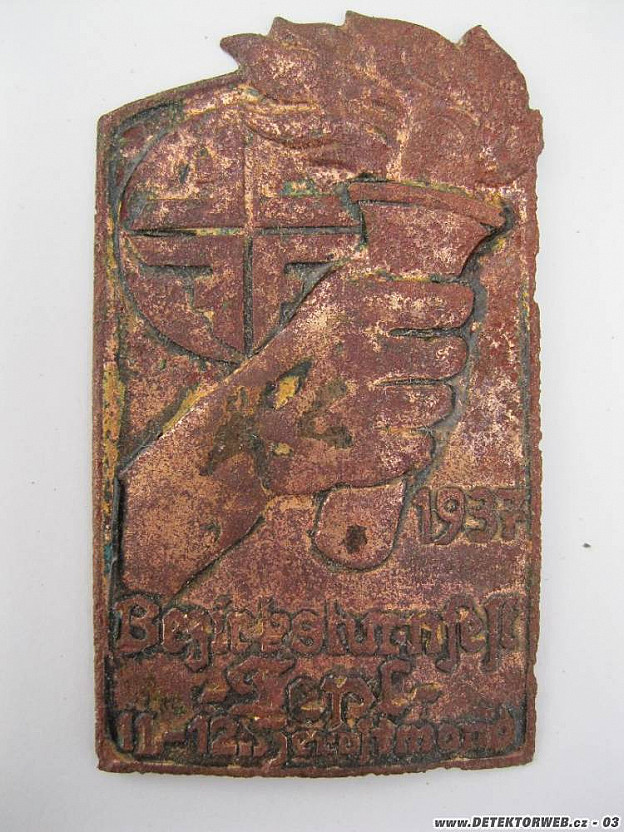 1937
Bezirksturnfest
-Tepl-
11-12. Herbstmond
www.DETEKTORWEB.cz - 03